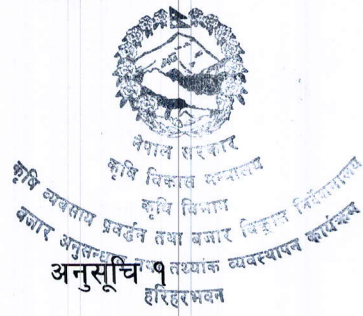 नेपाल सरकार
कृषि विकास मन्त्रालय
कृषि विभाग
कृषि व्यवसाय प्रवर्द्धन तथा बजार विकास निर्देशनालय
बजार अनुसन्धान तथा तथ्यांक व्यवस्थापन कार्यक्रम
हरिहरभवन
अनुसूचि १